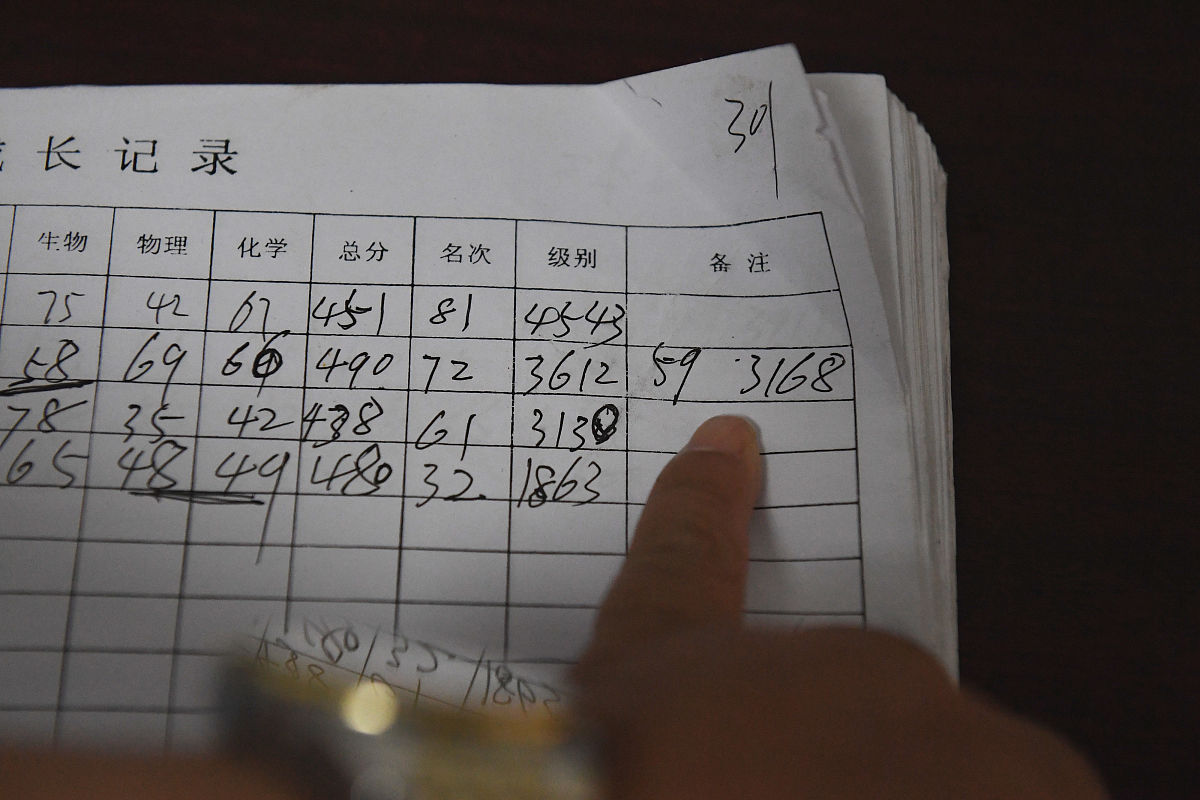 30
长记录
生物 物理 化学 总分 名次 级别 备注
75 42 67 451 81 4543
58 69 66 490 72 3612 59 3168
78 35 42 438 61 3130
65 48 49 480 32 1863